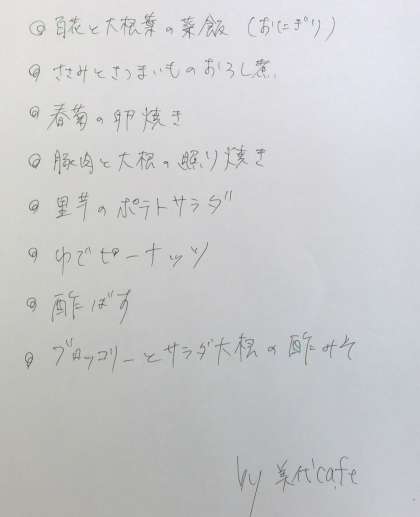 ◎ 百花と大根葉の菜飯 (おにぎり)
◎ ささみとさつまいものおろし煮
◎ 春菊の卵焼き
◎ 豚肉と大根の照り焼き
◎ 里芋のポテトサラダ
◎ ゆでピーナッツ
◎ 酢ばす
◎ ブロッコリーとサラダ大根の酢みそ
by 美代cafe